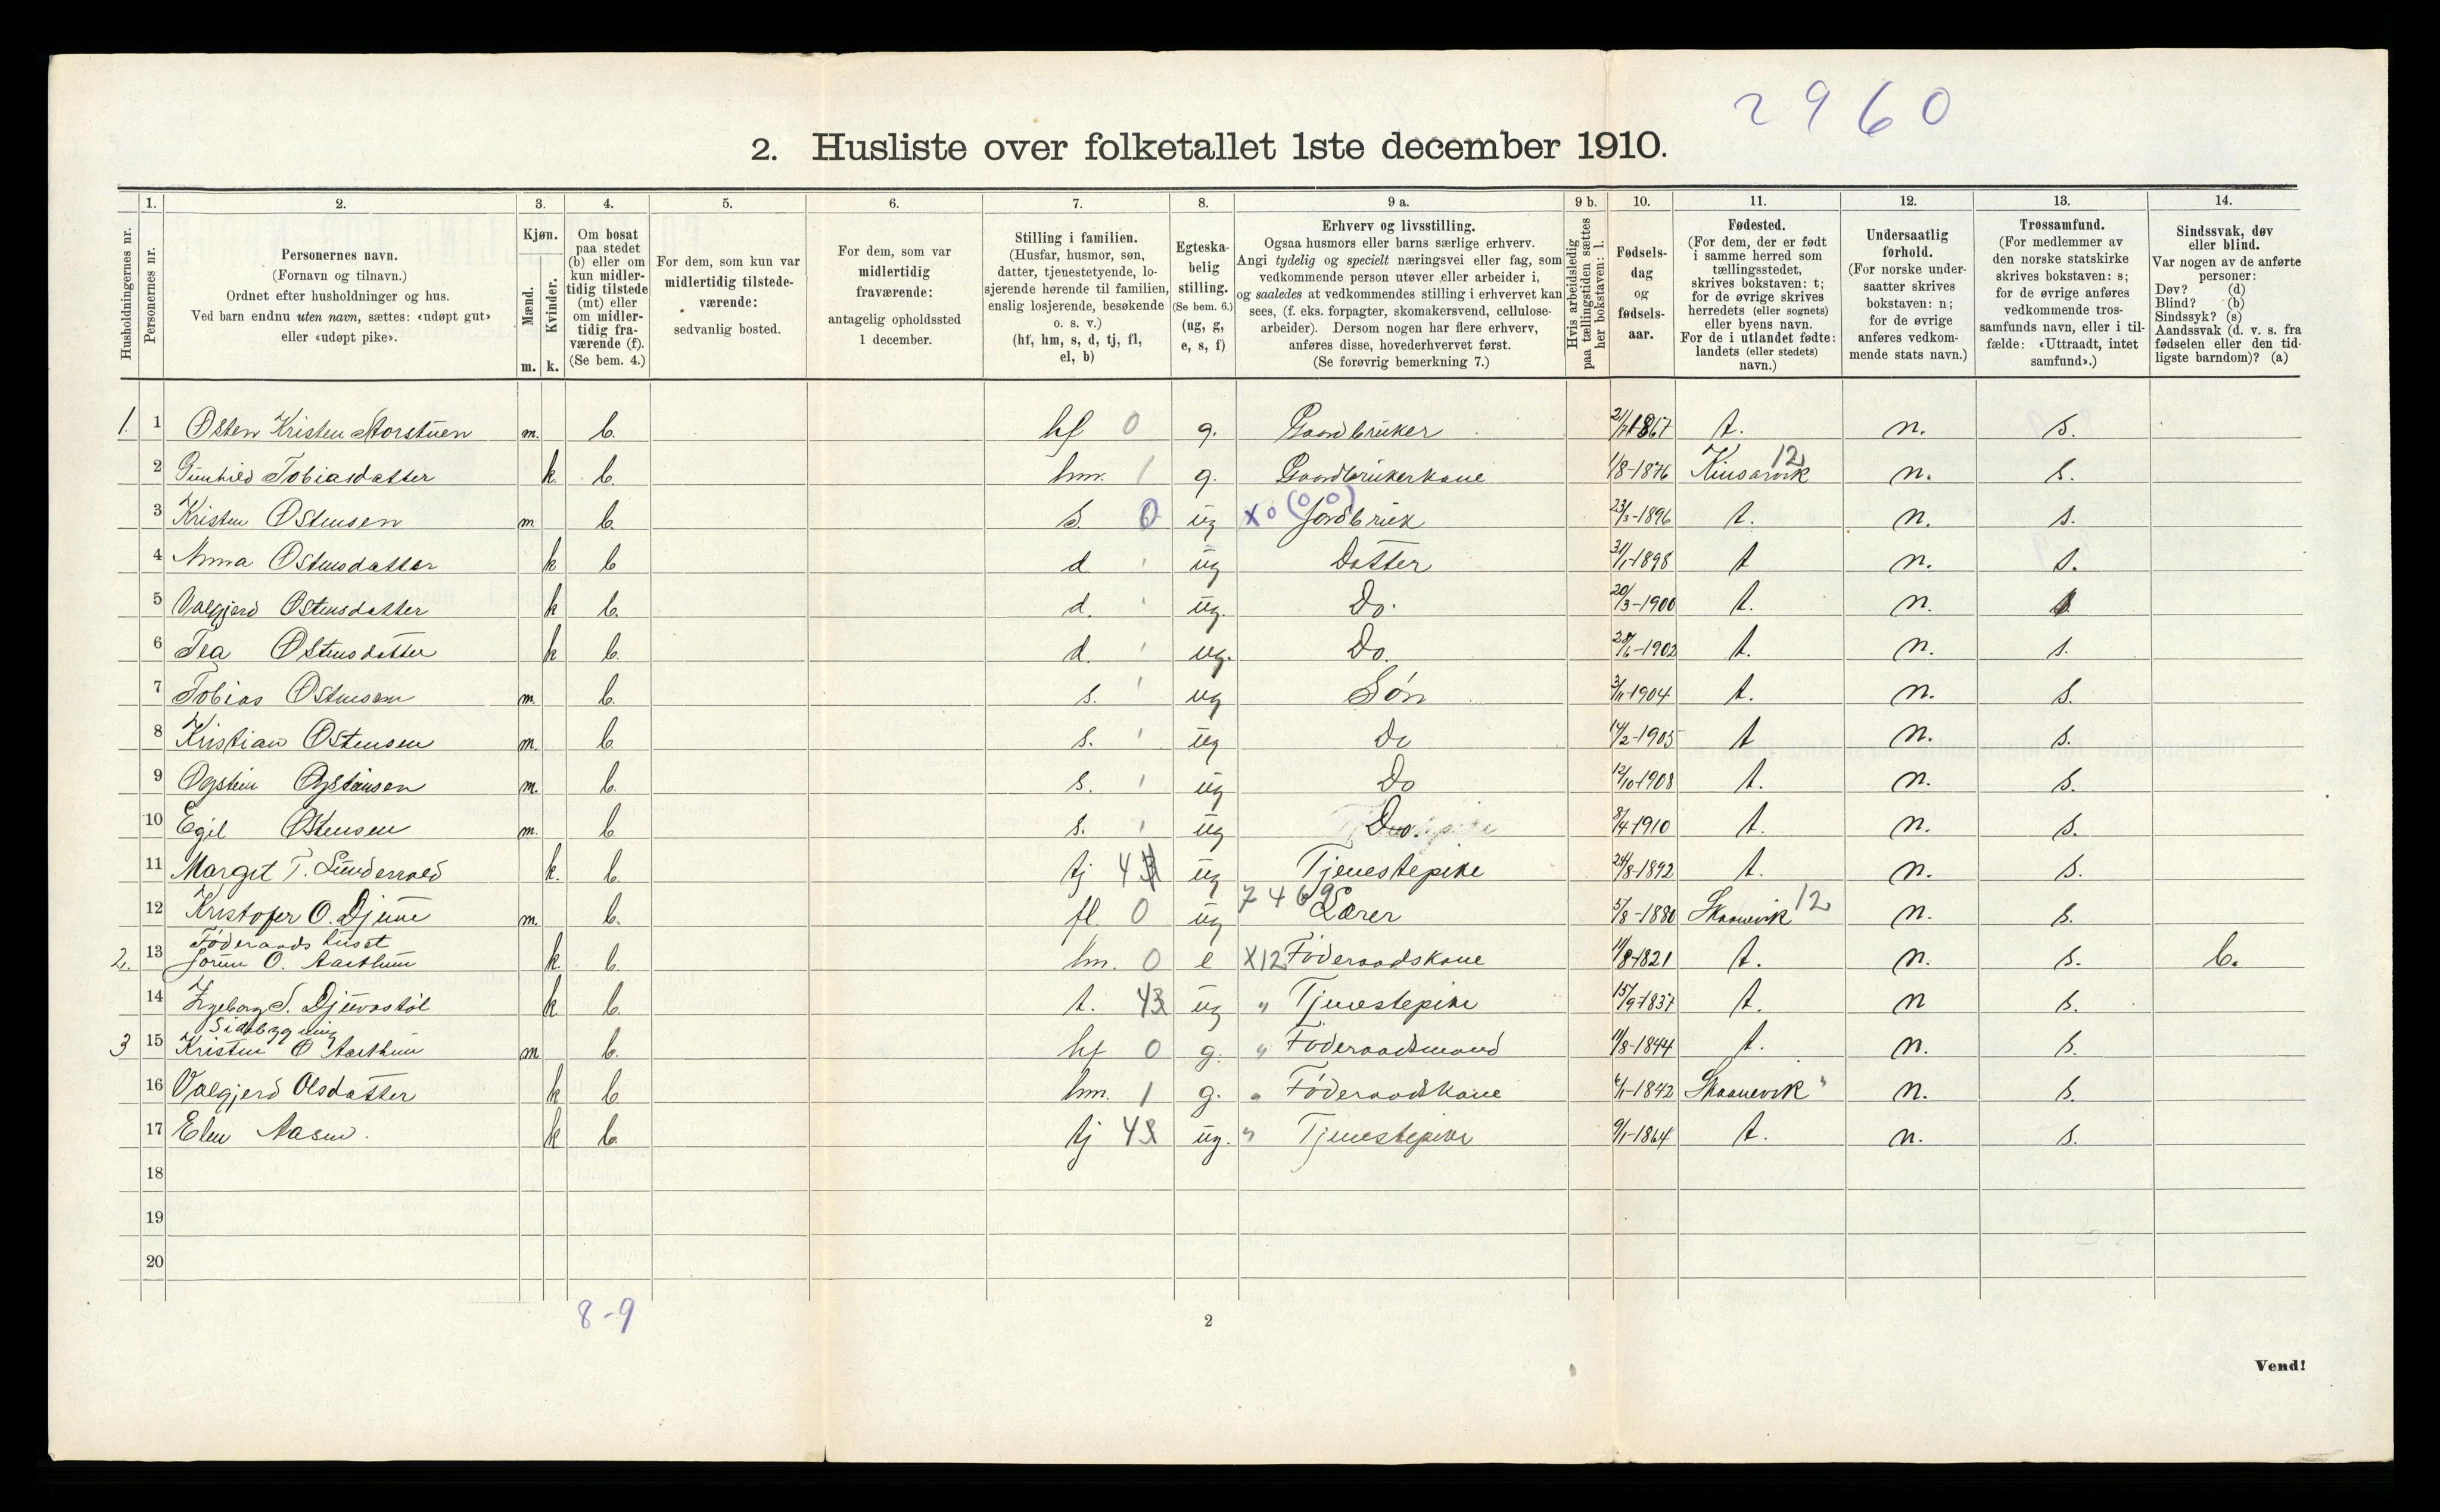 2960
2. Husliste over folketallet 1ste december 1910.
Husholdningernes nr.
1.
Personernes nr.
2.
Personernes navn.
(Fornavn og tilnavn.)
Ordnet efter husholdninger og hus.
Ved barn endnu uten navn, sættes: «udøpt gut»
eller «udøpt pike».
3.
Kjøn.
Mænd.
Kvinder.
m. k.
4.
Om bosat
paa stedet
(b) eller om
kun midler-
tidig tilstede
(mt) eller
om midler-
tidig fra-
værende (f).
(Se bem. 4.)
5.
For dem, som kun var
midlertidig tilstede-
værende:
sedvanlig bosted.
6.
For dem, som var
midlertidig
fraværende:
antagelig opholdssted
1 december.
7.
Stilling i familien.
(Husfar, husmor, søn,
datter, tjenestetyende, lo-
sjerende hørende til familien,
enslig losjerende, besøkende
o. s. v.)
(hf, hm, s, d, tj, fl,
el, b)
8.
Egteska-
belig
stilling.
(Se bem. 6.)
(ug, g,
e, s, f)
9 a.
Erhverv og livsstilling.
Ogsaa husmors eller barns særlige erhverv.
Angi tydelig og specielt næringsvei eller fag, som
vedkommende person utøver eller arbeider i,
og saaledes at vedkommendes stilling i erhvervet kan
sees, (f. eks. forpagter, skomakersvend, cellulose-
arbeider). Dersom nogen har flere erhverv,
anføres disse, hovederhvervet først.
(Se forøvrig bemerkning 7.)
9 b.
Hvis arbeidsledig
paa tællingstiden sættes
her bokstaven: l.
10.
Fødsels-
dag
og
fødsels-
aar.
11.
Fødested.
(For dem, der er født
i samme herred som
tællingsstedet,
skrives bokstaven: t;
for de øvrige skrives
herredets (eller sognets)
eller byens navn.
For de i utlandet fødte:
landets (eller stedets)
navn.)
12.
Undersaatlig
forhold.
(For norske under-
saatter skrives
bokstaven: n;
for de øvrige
anføres vedkom-
mende stats navn.)
13.
Trossamfund.
(For medlemmer av
den norske statskirke
skrives bokstaven: s;
for de øvrige anføres
vedkommende tros-
samfunds navn, eller i til-
fælde: «Uttraadt, intet
samfund».)
14.
Sindssvak, døv
eller blind.
Var nogen av de anførte
personer:
Døv? (d)
Blind? (b)
Sindssyk? (s)
Aandssvak (d. v. s. fra
fødselen eller den tid-
ligste barndom)? (a)
1. 1 Østen Kristen Storstuen m. b. hf 0 g. Gaardbruker 1867 t. n. s.
2 Gunhild Tobiasdatter k. b. hm. 1 g. Gaardbrukerkone 1/8-1876 Kinsarvik 12 n. s.
3 Kristen Østensen m b. s. 0 ug X0 (00) Jordbruk 23/3-1896 t. n. s.
4 Anna Østensdatter k b d ug Datter 31/1-1898 t n. s.
5 Valgjerd Østensdatter k b. d. ug. Do. 20/3-1900 t. n. s.
6 Tea Østensdatter k b. d. ug. Do. 28/6-1902 t. n. s.
7 Tobias Østensen m. b. s. ug Søn 3/11-1904 t. n. s.
8 Kristian Østensen m. b. s. ug Do 14/2-1905 t n. s.
9 Øystein Øystensen m. b. s. ug Do 12/10-1908 t. n. s.
10 Egil Østensen m. b. s. ug Do. 8/4-1910 t. n. s.
11 Margit T. Sundervold k. b. tj 43 ug Tjenestepike 24/8-1892 t. n. s.
12 Kristofer O. Djuve m. b. fl. 0 ug 7469 Lærer 5/8-1880 Skaanevik 12 n. s.
Føderaadshuset
2. 13 Jorun O. Aarthun k. b. hm. 0 e X12 Føderaadskone 11/8-1821 t. n. s. b.
14 Ingeborg S. Djuvastøl k b. t. 43 ug " Tjenestepike 15/9-1837 t. n s.
Sidebygning
3 15 Kristen O Aarthun m b. hf 0 g. " Føderaadsmand 11/8-1844 t. n. s.
16 Valgjerd Olsdatter k b hm. 1 g. " Føderaadskone 6/11-1842 Skaanevik " n. s.
17 Elen Aasen. k b. tj 43 ug. " Tjenestepike 9/1-1864 t. n. s.
18
19
20
8-9
2
Vend!